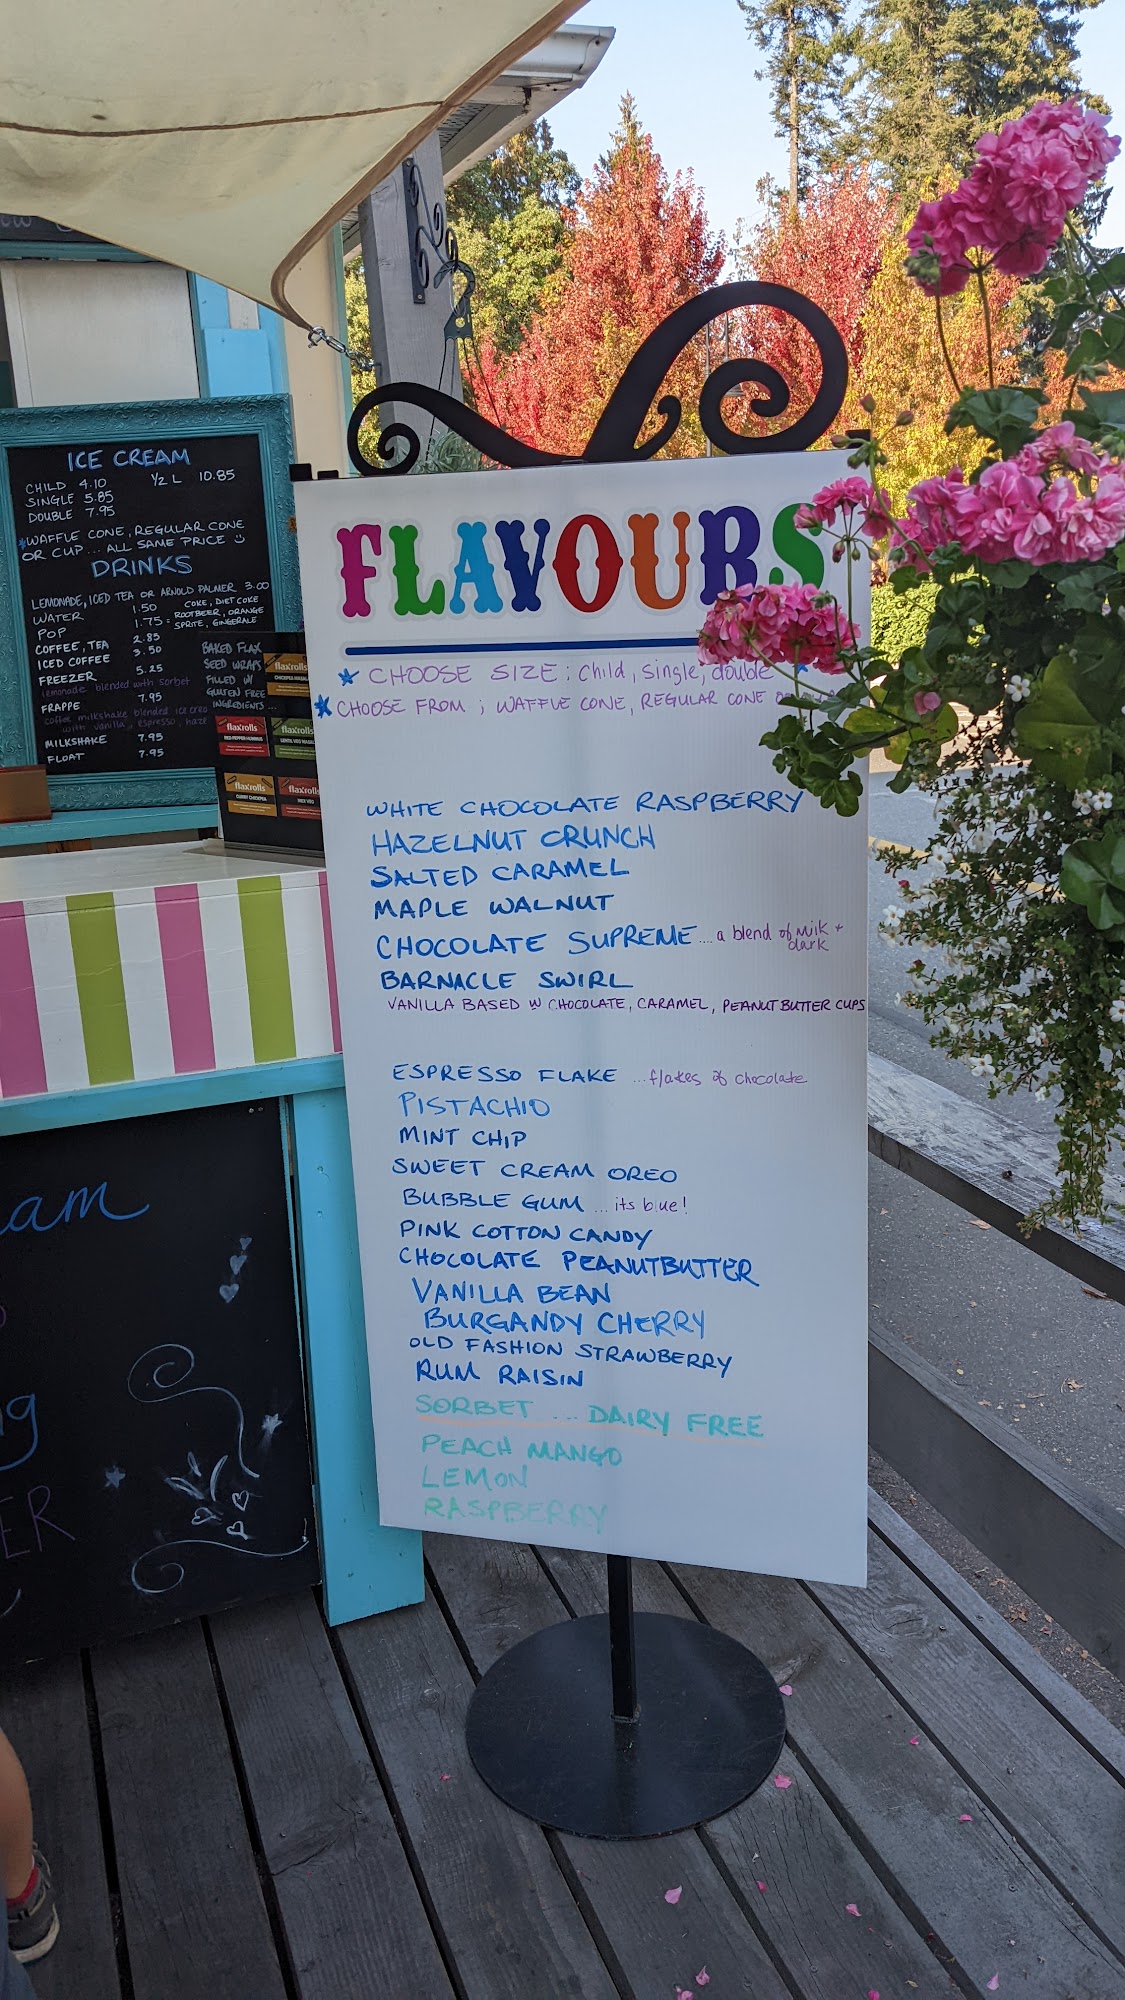 ICE CREAM
CHILD 4.10 1/2 L 10.85
SINGLE 5.85
DOUBLE 7.95
*WAFFLE CONE, REGULAR CONE
OR CUP... ALL SAME PRICE
DRINKS
LEMONADE, ICED TEA OR ARNOLD PALMER 3.00
WATER 1.50
POP 1.75 = COKE, DIET COKE
ROOTBEER, ORANGE
SPRITE, GINGERALE
COFFEE, TEA 2.85
ICED COFFEE 3.50
FREEZER 5.25
lemonade blended with sorbet
FRAPPE 7.95
coffee milkshake blended ice crea
with vanilla, espresso, haze
MILKSHAKE 7.95
FLOAT 7.95
BAKED FLAX
SEED WRAPS
FILLED W/
GLUTEN FREE
INGREDIENTS...
flaxrolls
flaxrolls
RED PEPPER HUMMUS
flaxrolls
flaxrolls
CURRY CHICKPEA
flaxrolls
FLAVOURS
* CHOOSE SIZE: Child, single, double *
* CHOOSE FROM; WAFFLE CONE, REGULAR CONE
WHITE CHOCOLATE RASPBERRY
HAZELNUT CRUNCH
SALTED CARAMEL
MAPLE WALNUT
CHOCOLATE SUPREME.... a blend of milk + dark
BARNACLE SWIRL
VANILLA BASED W CHOCOLATE, CARAMEL, PEANUT BUTTER CUPS
ESPRESSO FLAKE ...flakes of chocolate
PISTACHIO
MINT CHIP
SWEET CREAM OREO
BUBBLE GUM ...its blue!
PINK COTTON CANDY
CHOCOLATE PEANUTBUTTER
VANILLA BEAN
BURGANDY CHERRY
OLD FASHION STRAWBERRY
RUM RAISIN
SORBET ... DAIRY FREE
PEACH MANGO
LEMON
RASPBERRY
am
g
ER